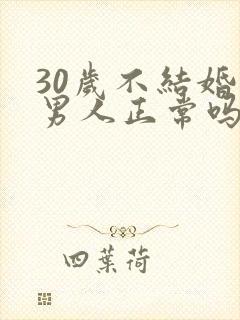 30歲不結婚
男人正常吗
四葉荷